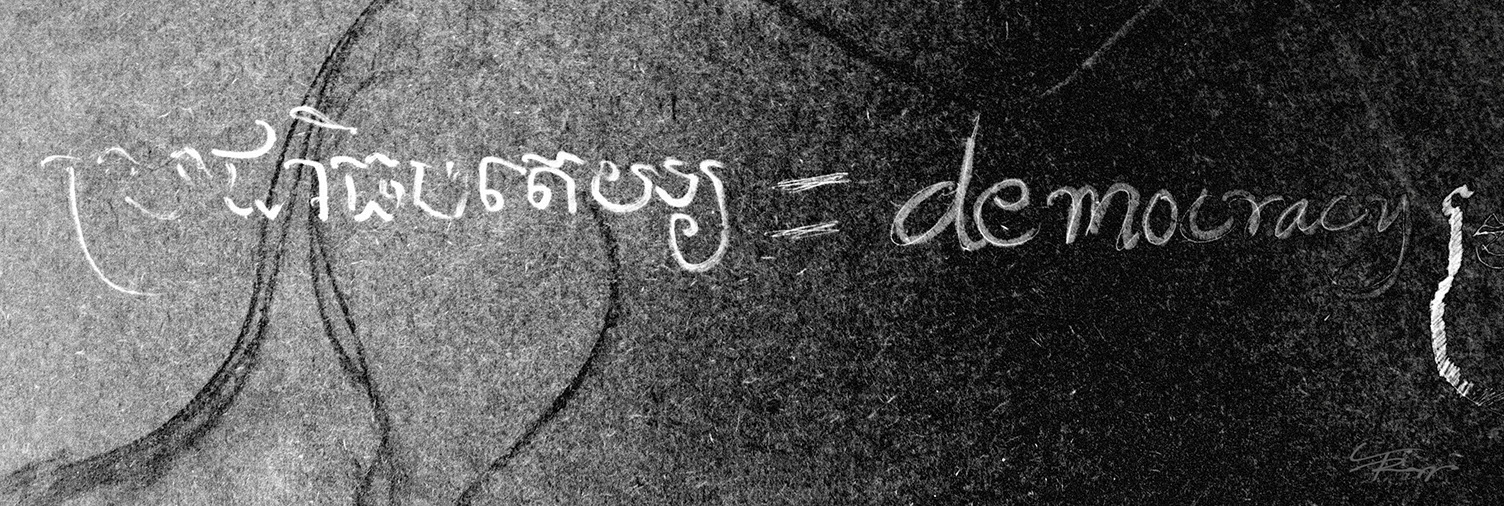 ប្រជាធិបតេយ្យ = democracy